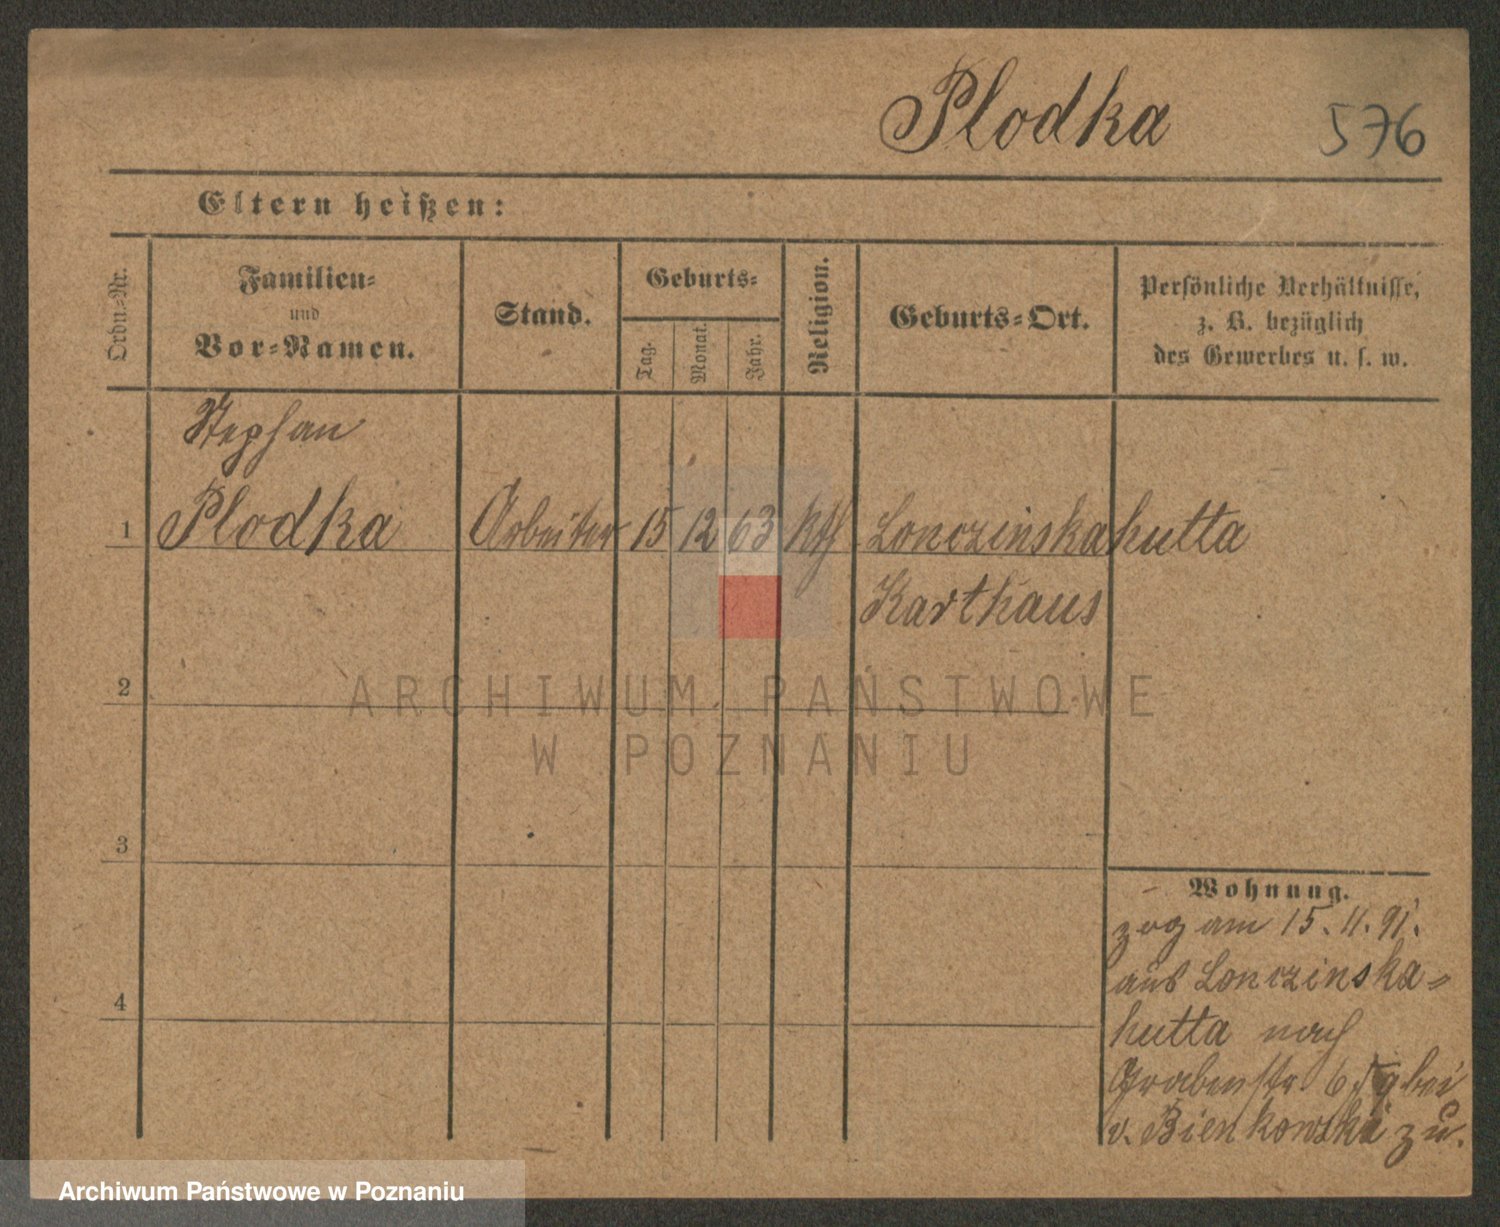 Plodka 576
Eltern heißen:
Ordn.-Nr.
Familien-
und
Vor-Namen.
Stand.
Geburts-
Tag.
Monat.
Jahr.
Religion.
Geburts-Ort.
Persönliche Verhältnisse,
z. B. bezüglich
des Gewerbes u. s. w.
Stephan
1 Plodka Arbeiter 15 12 63 kth. Lonczinskahutta
Karthaus
2
3
4
Wohnung.
zog am 15. 4. 91.
aus Lonczinska=
hutta nach
Grabenstr. 6 bei
v. Bienkowski zu.
ARCHIWUM PAŃSTWOWE
W POZNANIU
Archiwum Państwowe w Poznaniu